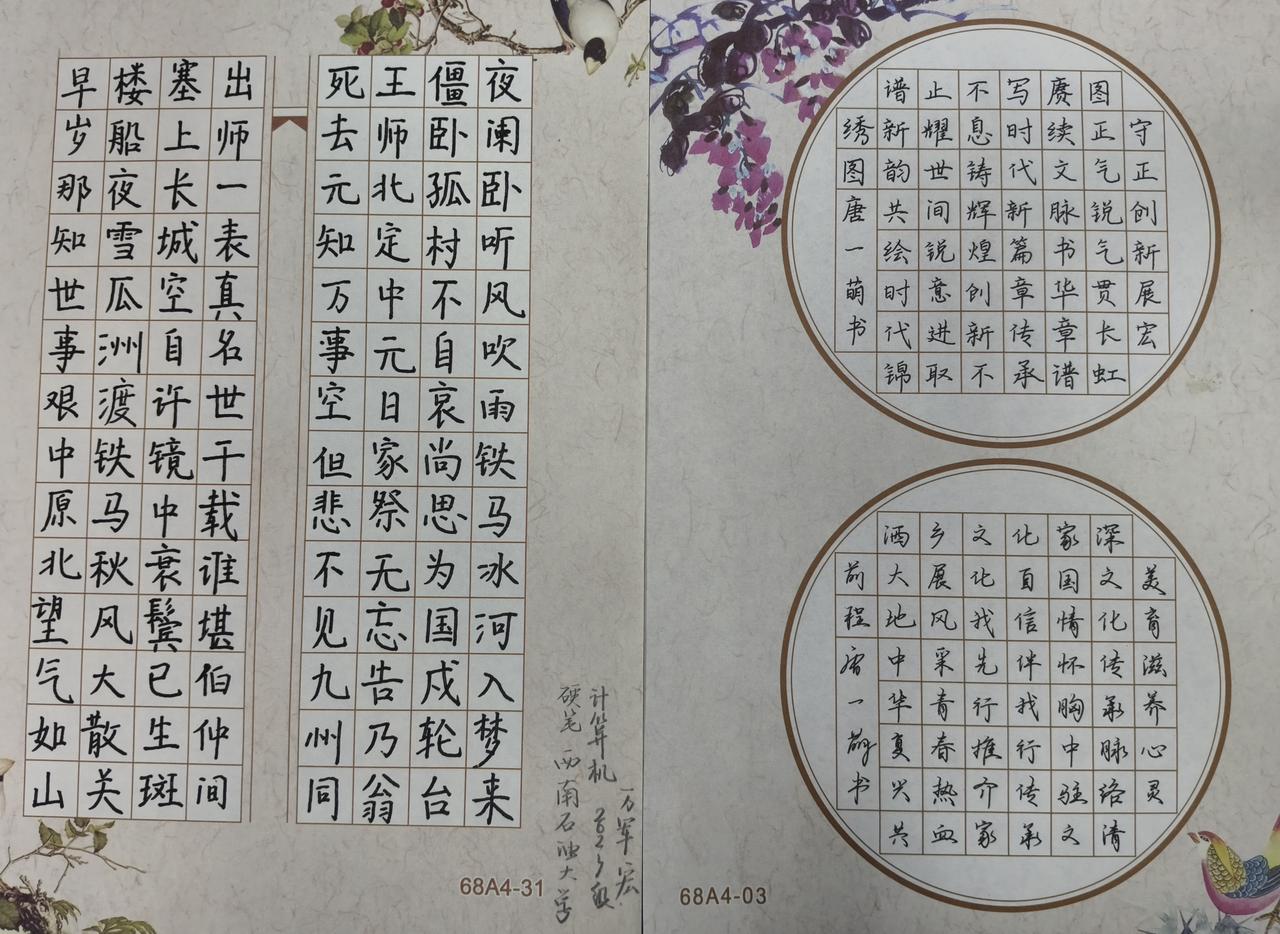 夜阑卧听风吹雨铁马冰河入梦来
僵卧孤村不自哀尚思为国戍轮台
王师北定中元日家祭无忘告乃翁
死去元知万事空但悲不见九州同
出师一表真名世千载谁堪伯仲间
塞上长城空自许镜中衰鬓已生斑
楼船夜雪瓜洲渡铁马秋风大散关
早岁那知世事艰中原北望气如山
万军宏
计算机
硬笔 西南石油大学
68A4-31
守正创新展宏
图正气锐气贯长虹
赓续文脉书华章谱
写时代新篇章传承
不息铸辉煌创新不
止耀世间锐意进取
谱新韵共绘时代锦
绣图唐一萌书
美育滋养心灵
深文化传承脉络清
家国情怀胸中驻文
化自信伴我行传承
文化我先行推介家
乡展风采青春热血
洒大地中华复兴共
前程唐一萌书
68A4-03